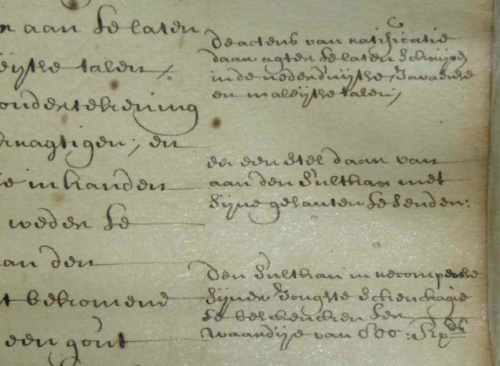 n aan te laten
eijtse talen,
ondertekening
ermagtigen; en
e in handen
weder te
an den
t bekomend
een gout
De actens van ratificatie
daar agter te laten schrijven
in de nederduijtse, Javaanse
en maleijtse talen;
en een stel daar van
aan den Sulthan met
sijne gesanten te senden:
Den Sulthan in recompense
sijner jongste schenckagie
te beschencken ter
waardije van 600: Rxds